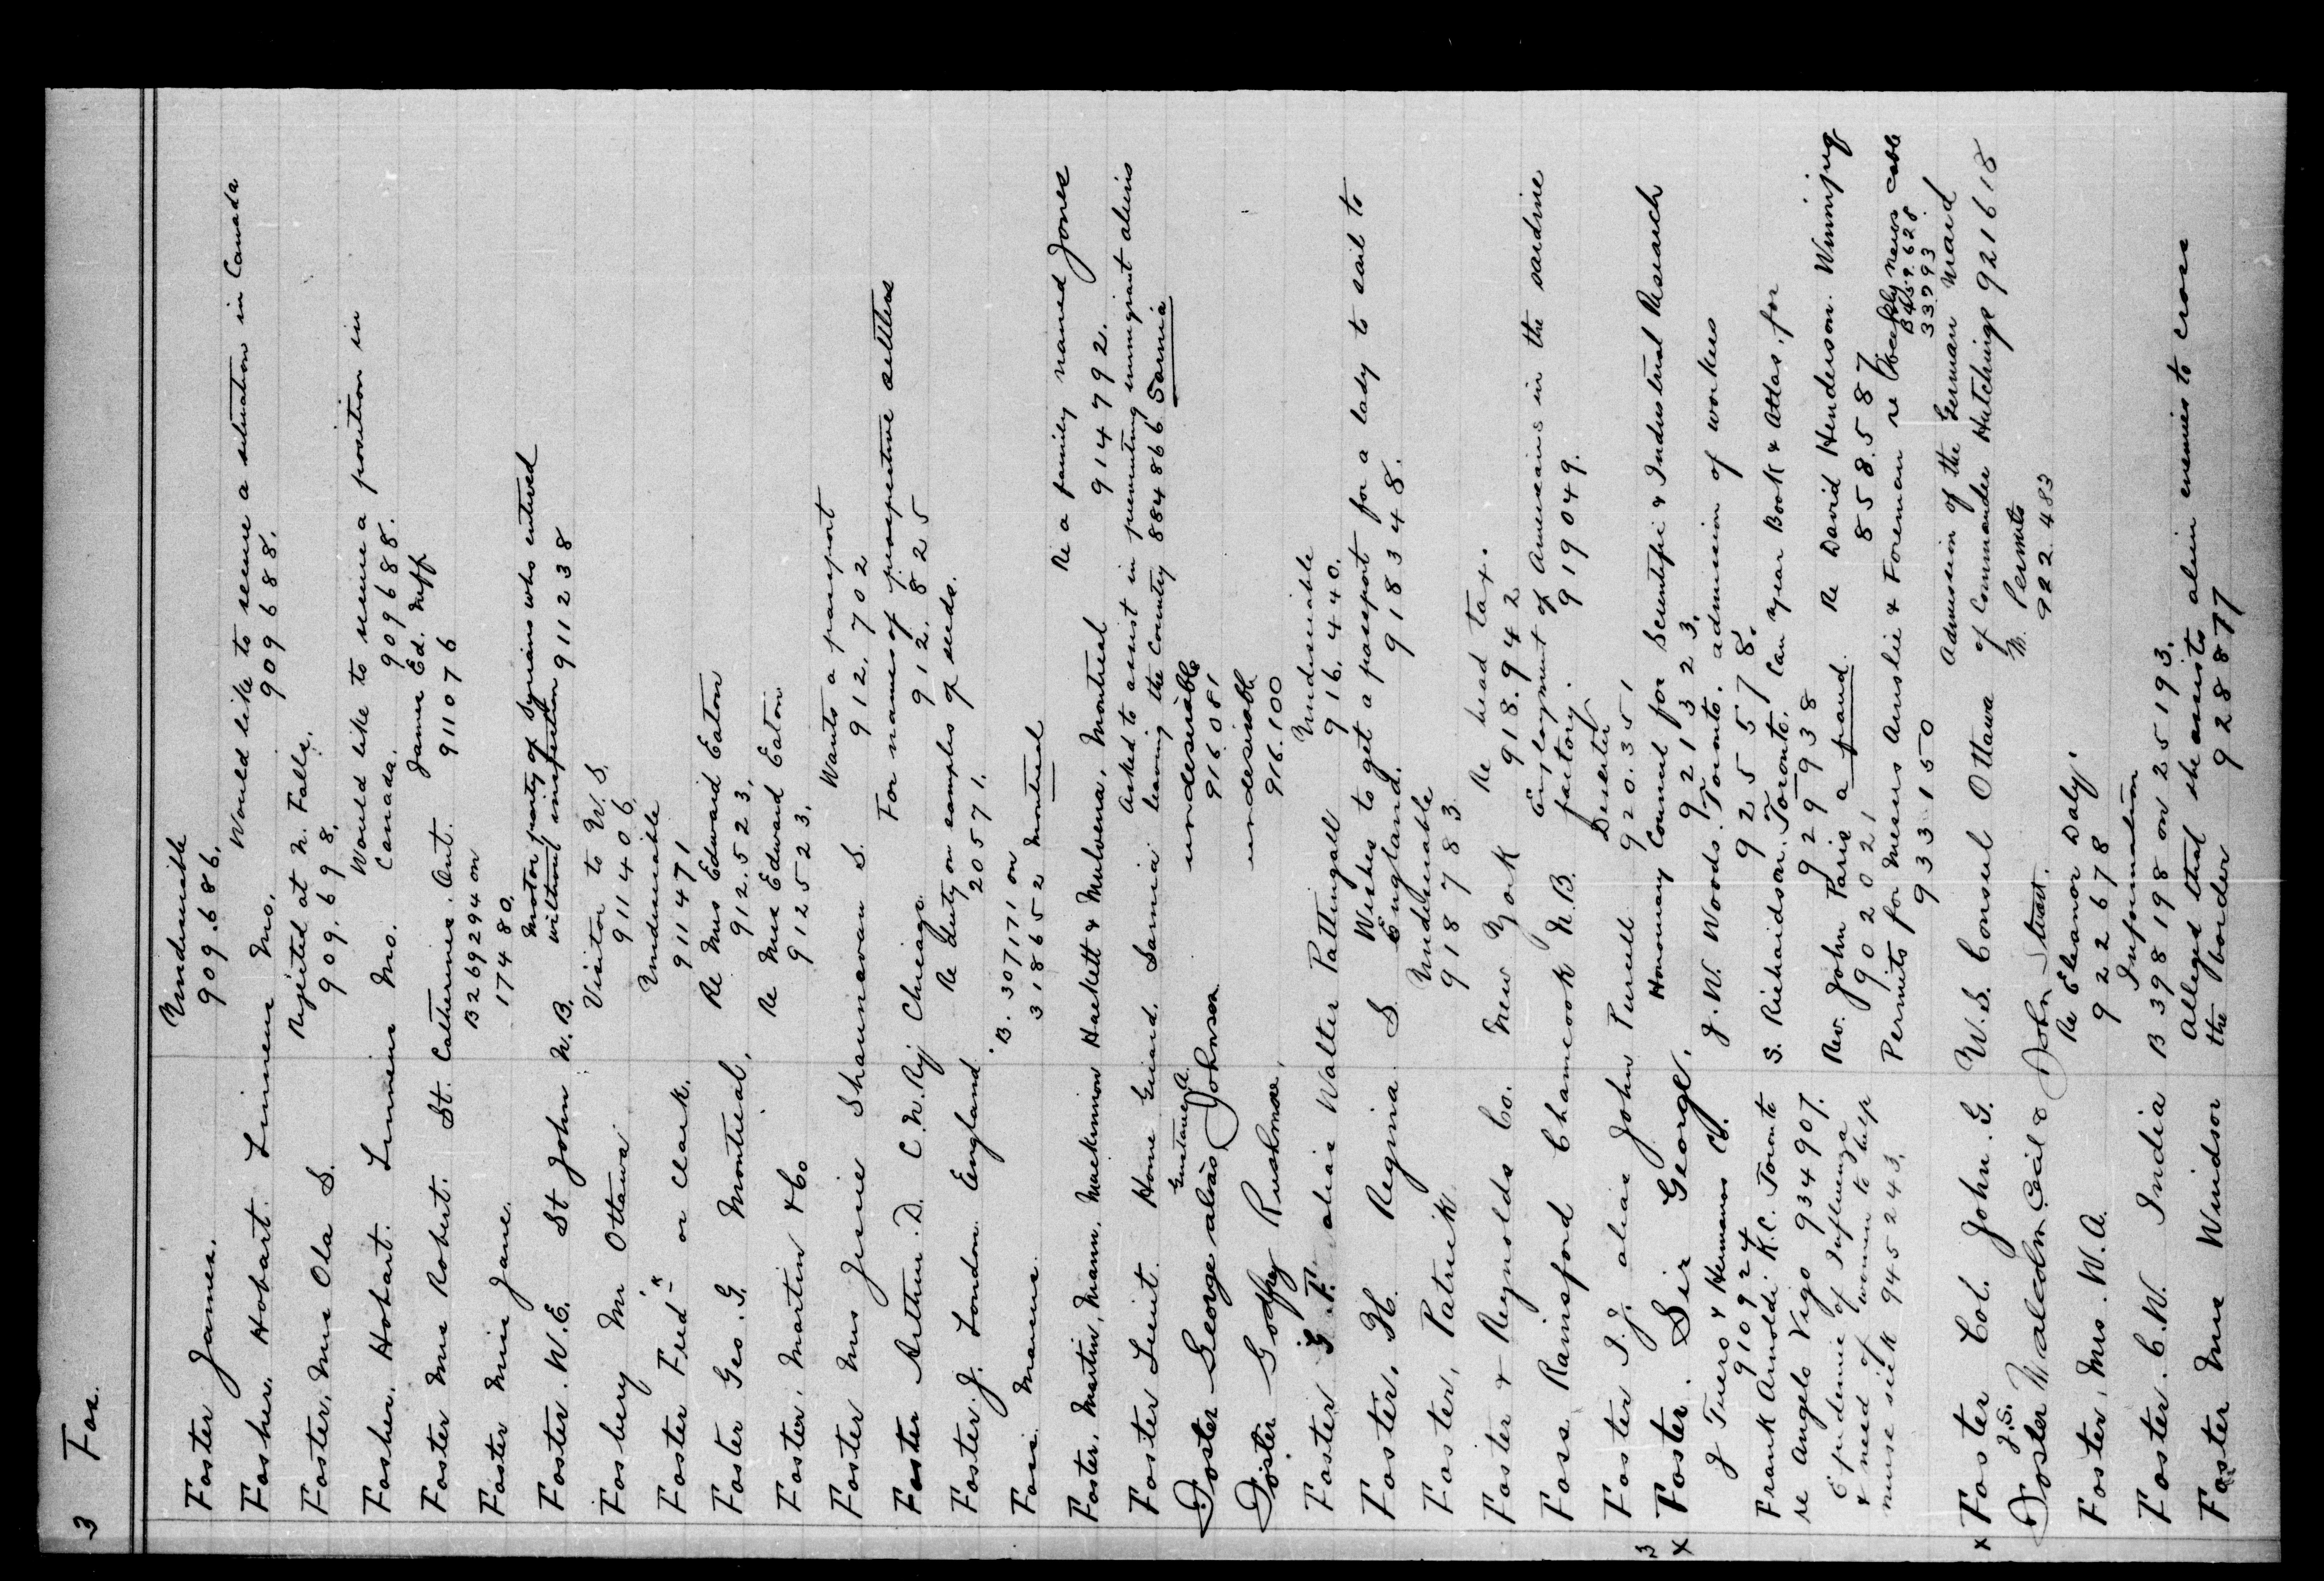 3 Fos.
Foster James. Undesirable
909.686.
Fosher, Hobart. Linneus Mo. Would like to secure a situation in Canada
909688.
Foster, Mrs Ola S. Rejected at N. Falls.
909.698.
Fosher, Hobart. Linneus Mo. Would like to secure a position in
Canada. 909688.
Foster Mrs Robert. St. Catherines. Ont. James Ed. Neff
911076
Foster Miss Jane. B269294 on
17480.
Foster. W.E. St John N.B. Motor party of Syrians who entered
without inspection 911238
Fosbery Mr Ottawa Visitor to U.S.
911406.
Foster Fred-k or Clark. Undesirable
911471
Foster Geo. G. Montreal. Re Mrs Edward Eaton
912.523.
Foster, Martin & Co Re Mrs Edward Eaton
912523.
Foster Mrs Jessie Shaunavon S. Wants a passport
912.702
Foster Arthur. D. C.N.Ry Chicago. For names of prospective settlers
912.825
Foster. J. London England Re duty on samples of seeds.
20571.
B. 307171 on
318652 Montreal
Foster, Martin, Mann, Mackinnon Hackett & Mulvena, Montreal Re a family named Jones
914792.
Foster Lieut. Home Guard. Sarnia Asked to assist in preventing immigrant aliens
leaving the Country 884866 Sarnia
Foster George alias Gustave A. Johnson undesirable
916081
Foster Godfrey Rushmore, undesirable
916.100
Foster G.F. alias Walter Pattingall Undesirable
916.440.
Foster, H. Regina S Wishes to get a passport for a lady to sail to
England. 918348.
Foster, Patrick Undesirable
918783
Foster & Reynolds Co. New York Re head tax.
918.942
Foss Rainsford Chamcook N.B. Employment of Americans in the sardine
factory. 919049.
Foster J.J. alias John Purcell Deserter
920.351
3
x Foster. Sir George. Honorary Council for Scientific & Industrial Research
921323.
J Tuero & Hermanos J.W. Woods. Toronto. admission of workers
910924 925578.
Frank Arnoldi K.C. Toronto S. Richardson. Toronto. Can Year Book & Atlas. for
re Angelo Vigo 934907. 929938
Epidemic of Influenza Rev. John Paris a fraud. Re David Henderson. Winnipeg
& need of women to help 902021 858.587
nurse sick 945243. Permits for Messrs Anslie & Foreman re news cable
933150 33993
x Foster Col. John. G. U.S. Consul Ottawa Admission of the German Maid
of Commander Hutchings 921618
Foster J.S. Malcolm Cecil & John Stuart. Permits
922483
Foster, Mrs. W.A. Re Eleanor Daly.
922678
Foster. C.W. India Information
B 398198 on 25193.
Foster Mrs Windsor Alleged that she assists alien enemies to cross
the border 928877